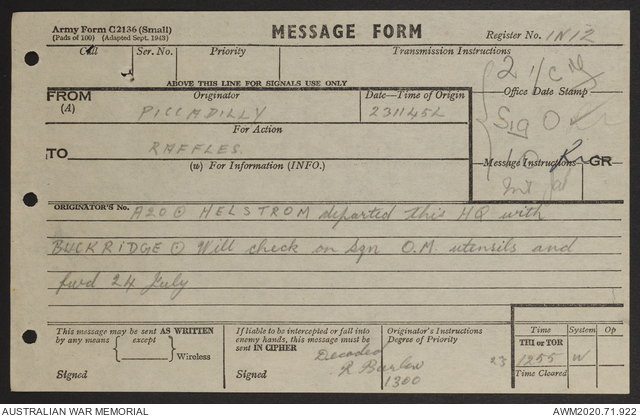 Army Form C2136 (Small)
(Pads of 100) (Adapted Sept. 1943)
MESSAGE FORM
Register No. 1N12
Call
Ser. No.
Priority
Transmission Instructions
ABOVE THIS LINE FOR SIGNALS USE ONLY
FROM
(A)
Originator
PICCADILLY
Date—Time of Origin
231145L
Office Date Stamp
Sig O
For Action
TO
RAFFLES.
(w) For Information (INFO.)
Message Instructions
GR
ORIGINATOR'S No.
A20 ⊙ HELSTROM departed this HQ with
BUCKRIDGE ⊙ Will check on sqn O.M. utensils and
fwd 24 July
This message may be sent AS WRITTEN
by any means { except }
Wireless
Signed
If liable to be intercepted or fall into
enemy hands, this message must be
sent IN CIPHER
Decoded
R Barlow
1300
Signed
Originator's Instructions
Degree of Priority
23
Time
System
Op
THI or TOR
1255
W
Time Cleared
AUSTRALIAN WAR MEMORIAL
AWM2020.71.922